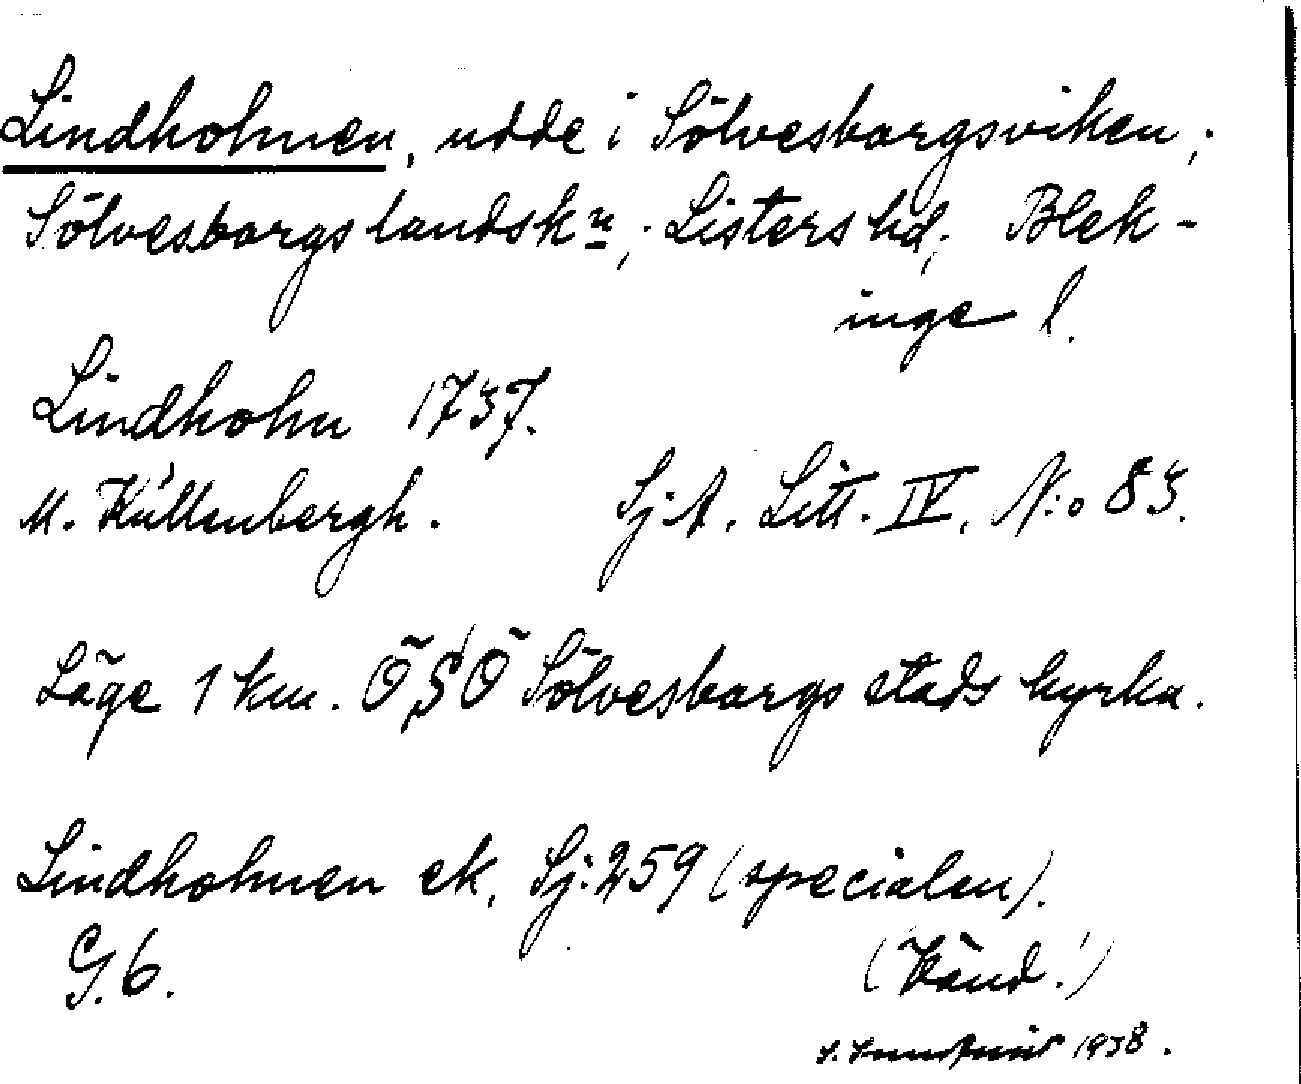 Lindholmen, udde i Sölvesborgsviken,
Sölvesborgs landskn, Listers hd, Blek-
inge l.
Lindholm 1737.
M. Kullenbergh. Sj. A. Litt. IV, N:o 83.
Läge 1 km. ÖSÖ Sölvesborgs stads kyrka.
Lindholmen ek. Sj. 259 (specialen).
G. 6. (Känd!)
1938.